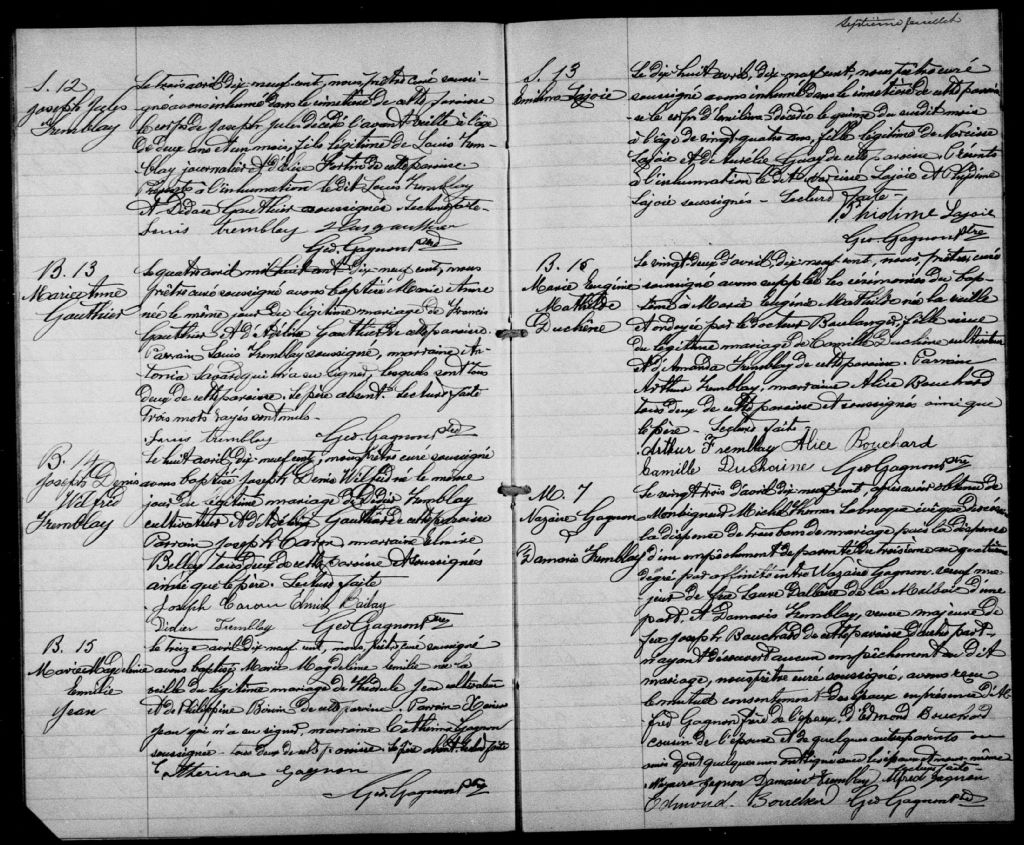 septième feuillet
S. 12
Joseph Jules
Tremblay
Le trois avril, dix-neuf cent, nous prêtre curé soussi-
gné avons inhumé dans le cimetière de cette paroisse
le corps de Joseph Jules décédé l'avant veille à l'âge
de deux ans et un mois, fils légitime de Louis Trem-
blay journalier et d'Elise Fortin de cette paroisse.
Présents à l'inhumation le dit Louis Tremblay
et Gauthier soussignés. Lecture faite
Louis tremblay gauthier
Geo. Gagnon ptre
B. 13
Marie Anne
Gauthier
Le quatre avril mil huit cent dix-neuf cent, nous
prêtre curé soussigné avons baptisé Marie Anne
née le même jour du légitime mariage de Francis
Gauthier et d'Adèlia Gauthier de cette paroisse.
Parrain Louis Tremblay soussigné, marraine An-
tonia Savard qui n'a su signer, lesquels sont tous
deux de cette paroisse. Le père absent. Lecture faite
Trois mots rayés sont nuls.
Louis tremblay Geo. Gagnon ptre
B. 14
Joseph Denis
Wilfrid
Tremblay
Le huit avril, dix-neuf cent, nous prêtre curé soussigné
avons baptisé Joseph Denis Wilfrid né le même
jour du légitime mariage de Didier Tremblay
cultivateur et d'Adèlia Gauthier de cette paroisse
Parrain Joseph Caron marraine
Belley tous deux de cette paroisse et soussignés
ainsi que le père. Lecture faite
Joseph Caron
Didier Tremblay Geo Gagnon ptre
B. 15
Marie Magdeleine
Emilie
Jean
Le treize avril dix neuf cent, nous, prêtre curé soussigné
avons baptisé Marie Magdeleine Emilie née la
veille du légitime mariage de Théodule Jean cultivateur
et de Philippine Boivin de cette paroisse. Parrain Xavier
Jean qui n'a su signer, marraine Catherine Gagnon
soussignée tous deux de cette paroisse. Le père absent. Lecture faite
Catherina Gagnon
Geo. Gagnon ptre
S. 13
Emilina Lajoie
Le dix-huit avril, dix-neuf cent, nous prêtre curé
soussigné avons inhumé dans le cimetière de cette parois-
se le corps d'Emilina décédée le quinze du susdit mois
à l'âge de vingt-quatre ans, fille légitime de Narcisse
Lajoie et d'Aurélie Guay de cette paroisse Présents
à l'inhumation le dit Narcisse Lajoie et Phydime
Lajoie soussignés - Lecture faite
Phidime Lajoie
Geo. Gagnon ptre
B. 16
Marie Eugénie
Mathilde
Duchêne
Le vingt-deux d'avril, dix-neuf cent, nous, prêtre, curé
soussigné avons suppléé les cérémonies du bap-
tême à Marie Eugénie Mathilde née la veille
et ondoyée par le docteur Boulanger, fille issue
du légitime mariage de Camille Duchêne cultivateur
et d'Amanda Tremblay de cette paroisse. Parrain
Arthur Tremblay, marraine Alice Bouchard
tous deux de cette paroisse et soussignés ainsi que
le père - Lecture faite -
Arthur Tremblay Alice Bouchard
Camille Duchaine Geo Gagnon ptre
M. 7
Nazaire Gagnon
&
Damaris Tremblay
Le vingt trois d'avril dix neuf cent, après avoir obtenu de
Monseigneur Michel Thomas Labrecque évêque de
la dispense de trois bans de mariage puis la dispense
d'un empêchement de parenté du troisième au quatrième
degré par affinité entre Nazaire Gagnon, veuf ma-
jeur de feu Laure Dallaire de la Malbaie d'une
part, et Damaris Tremblay, veuve majeure de
feu Joseph Bouchard de cette paroisse d'autre part
n'ayant découvert aucun empêchement au dit
mariage, nous prêtre curé soussigné, avons reçu
le mutuel consentement des époux en présence d'Al-
fred Gagnon frère de l'époux, d'Edmond Bouchard
cousin de l'épouse et de quelques autres parents ou
amis dont quelques uns ont signé avec les époux
Lecture faite
Nazaire gagnon Damaris Tremblay Alfred gagnon
Edmond Geo Gagnon ptre